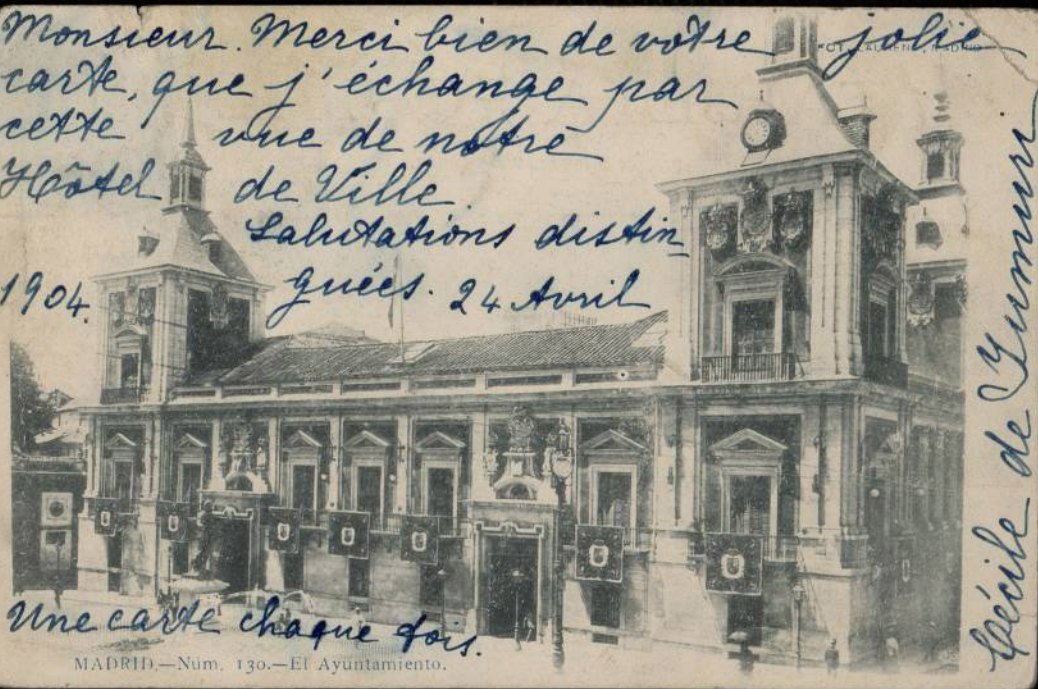 Monsieur. Merci bien de votre jolie
carte, que j'échange par
cette vue de notre
Hôtel de Ville.
Salutations distin
guées. 24 Avril
1904.
Une carte chaque fois.
MADRID.—Núm. 130.—El Ayuntamiento.
LAURENT, MADRID
Cécile de